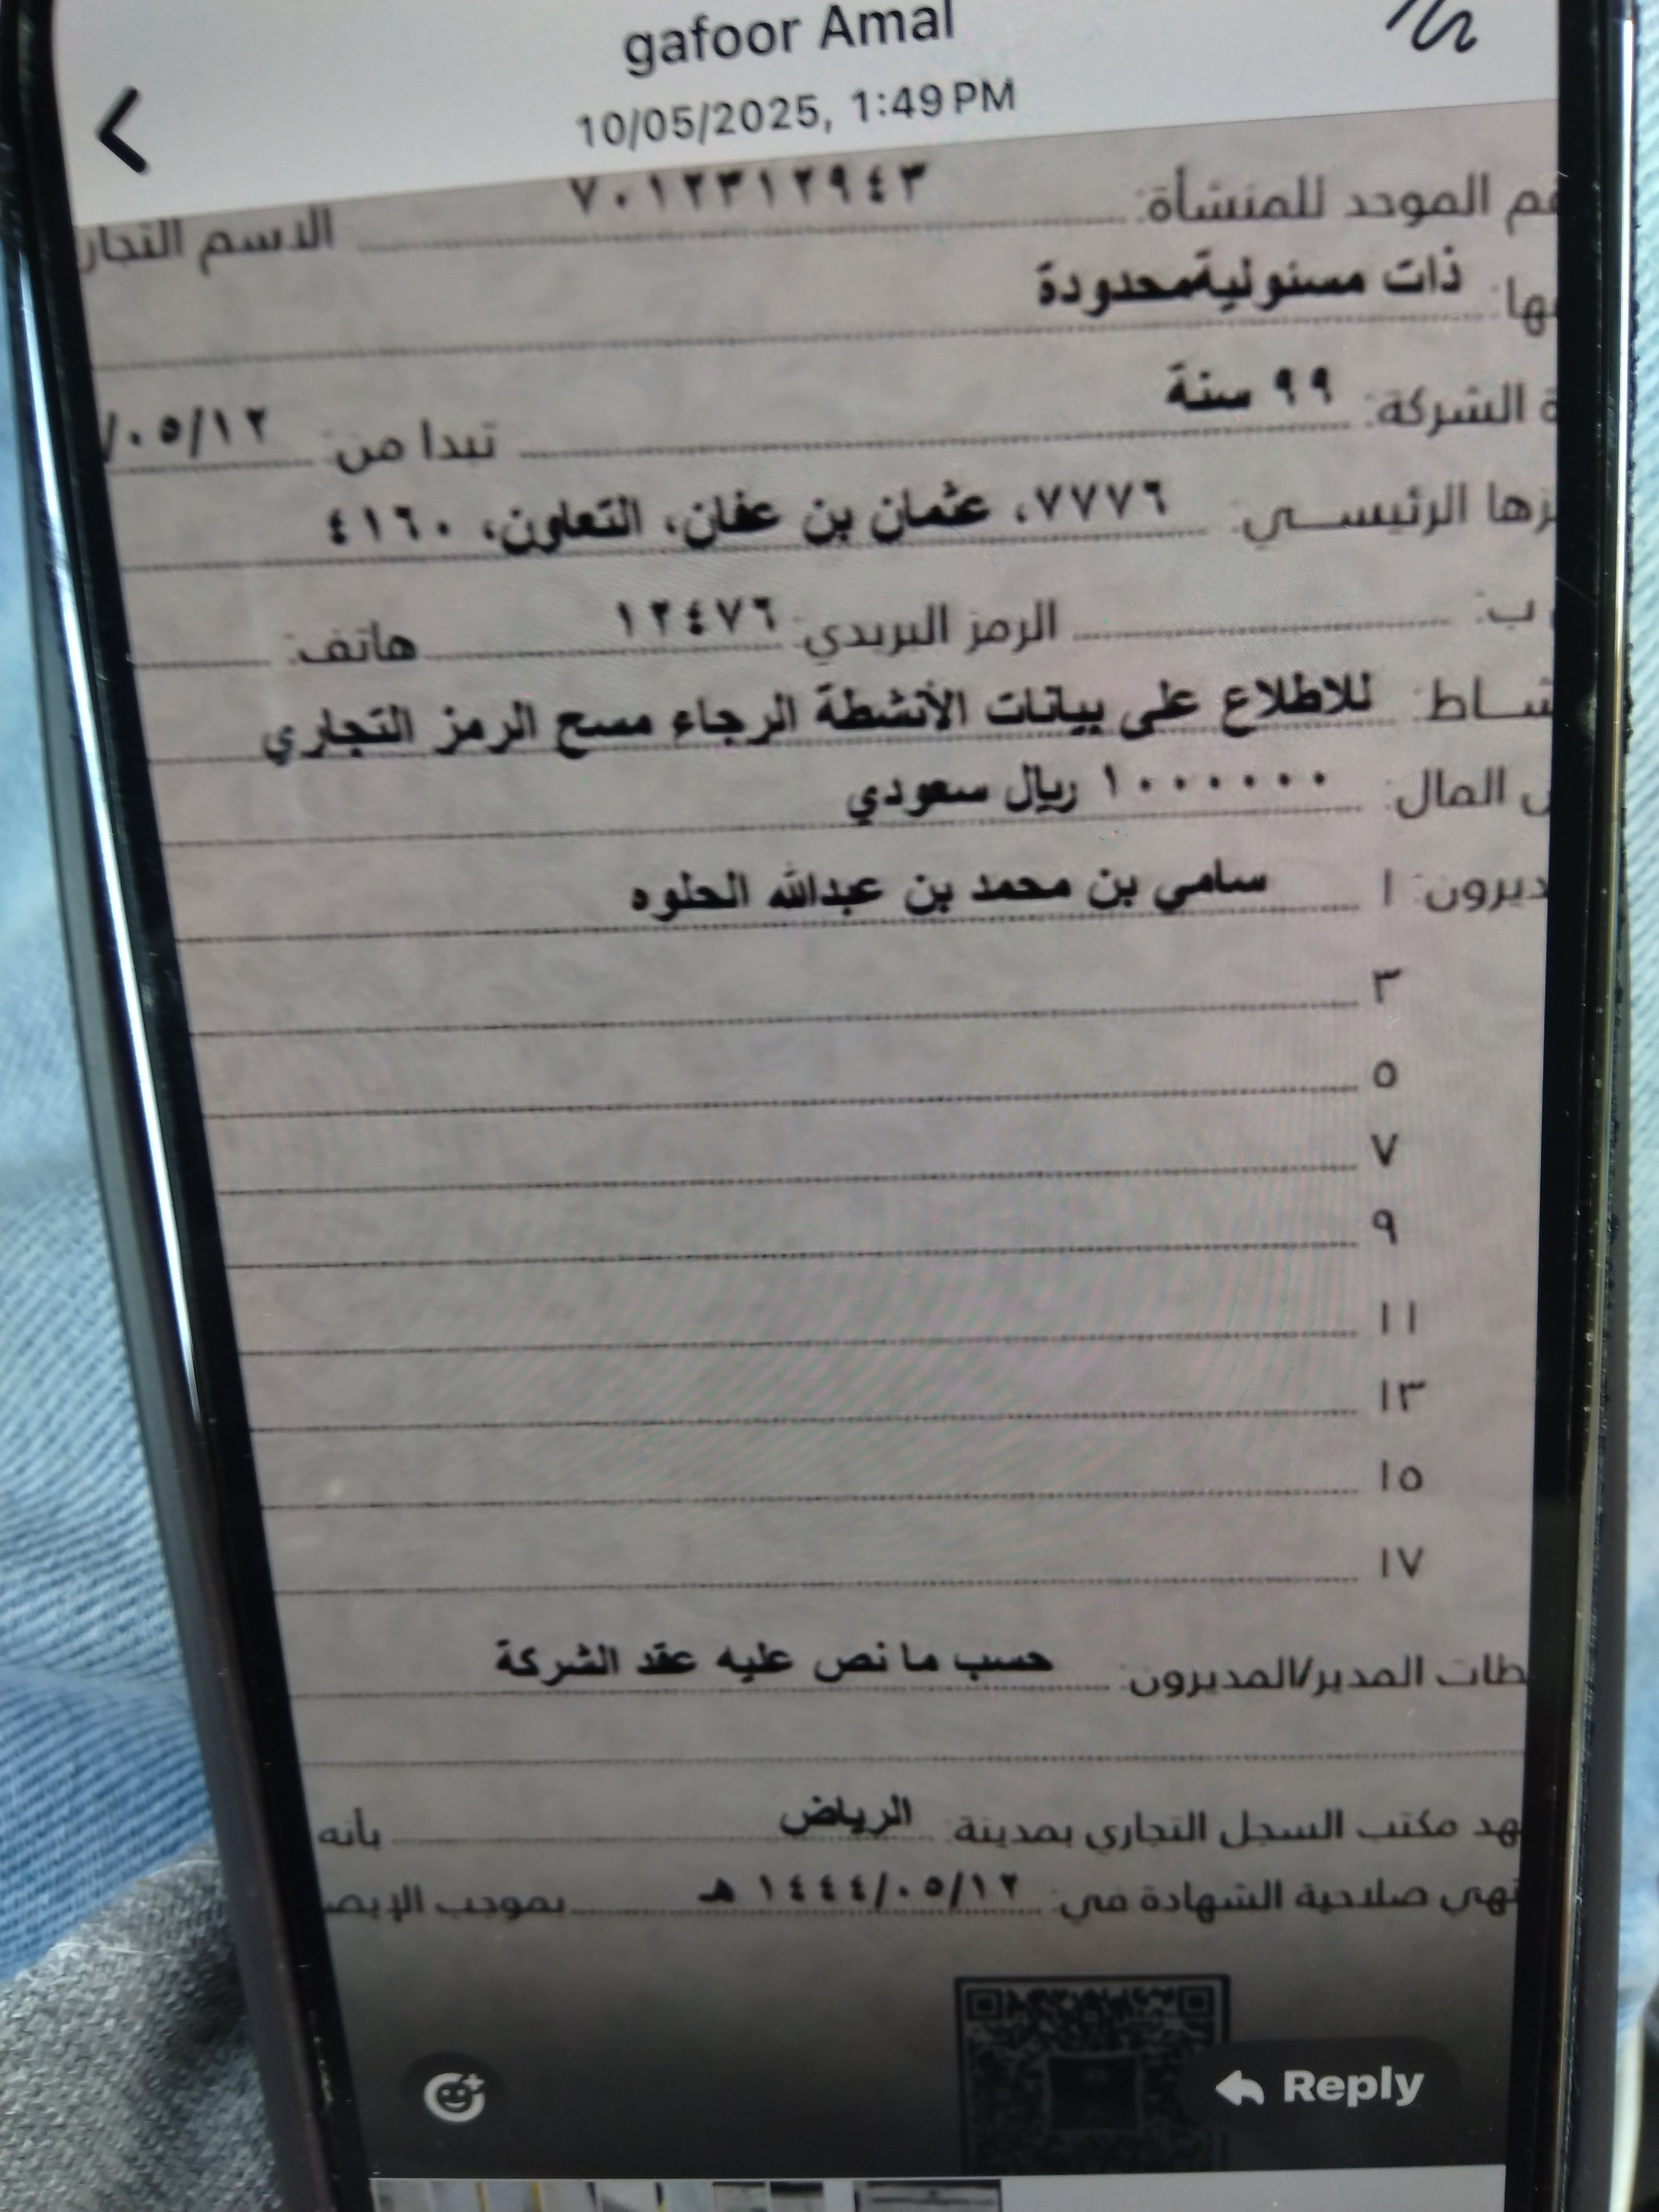 gafoor Amal
10/05/2025, 1:49 PM
الموحد للمنشأة: ٧٠١٢٣١٢٩٤٣ الاسم
ذات مسئوليةمحدودة
الشركة: ٩٩ سنة تبدا من: ٠٥/١٢/
الرئيسـي: ٧٧٧٦، عثمان بن عفان، التعاون، ٤١٦٠
ب: الرمز البريدي: ١٢٤٧٦ هاتف:
للاطلاع على بيانات الأنشطة الرجاء مسح الرمز التجاري
المال: ١٠٠٠٠٠٠ ريال سعودي
١ سامي بن محمد بن عبدالله الحلوه
٣
٥
٧
٩
١١
١٣
١٥
١٧
المدير/المديرون: حسب ما نص عليه عقد الشركة
مكتب السجل التجاري بمدينة الرياض بأنه
صلاحية الشهادة في: ١٤٤٤/٠٥/١٢ هـ بموجب
Reply